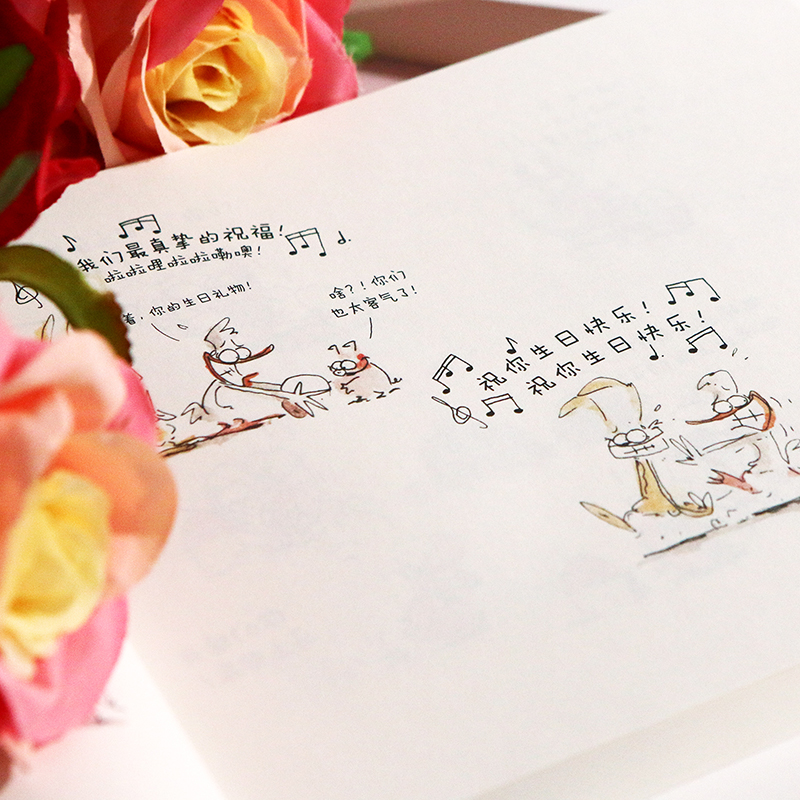 我们最真挚的祝福!
啦啦哩啦啦嘞噢!
着,你的生日礼物!
啥?!你们
也太客气了!
祝你生日快乐!
祝你生日快乐!